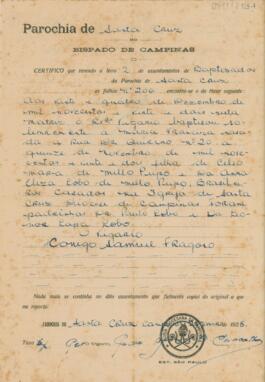 Parochia de Santa Cruz
BISPADO DE CAMPINAS
CERTIFICO que revendo o livro 2 de assentamentos de Baptizados
da Parochia de Santa Cruz
as folhas Nº 206 encontra-se o do theor seguinte
Aos vinte e quatro de Dezembro de
mil novecentos e vinte e dois nesta
matriz o
a Rua Dr Quirino Nº 20 a
quinze de Novembro de mil nove-
centos e vinte e dois filha de Celso
Maria de Mello Pupo e Da Anna
Eliza Lobo de Mello Pupo, Brasilei-
ros casados na Igreja de Santa
Cruz Diocese de Campinas foram
padrinhos Dr Paulo Lobo e Da
Lapa Lobo.
O Vigario
Conego Samuel Fragoso
Nada mais se continha no dito assentamento que fielmente copiei do original a que
me reporto.
Santa Cruz
EST. SÃO PAULO